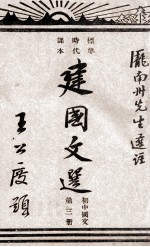 龐南舟先生選註
標準時代課本
建國文選
初中國文第三冊
王公度題